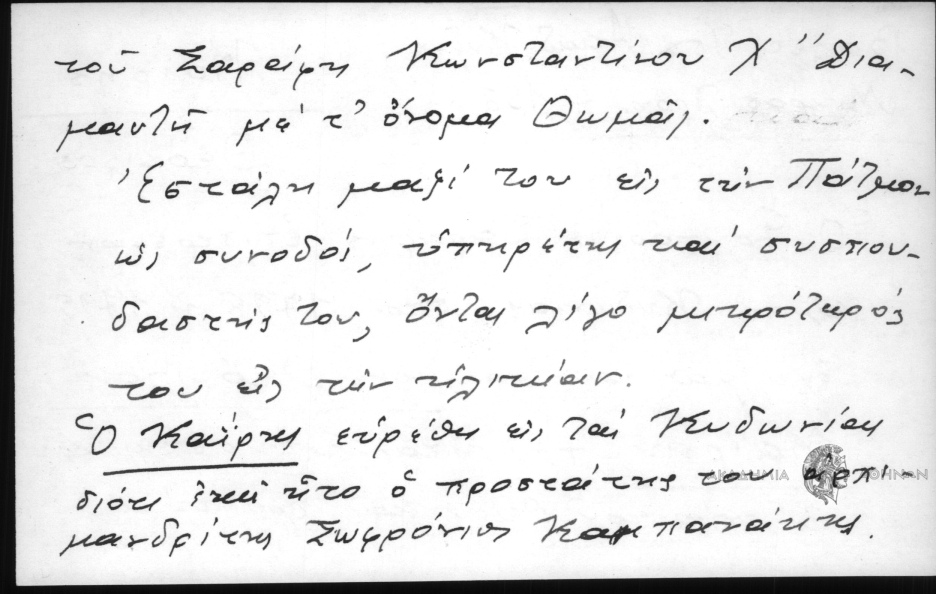 τοῦ Σαράφη Κωνσταντίνου Χ'' Δια-
μαντῆ μέ τ' ὄνομα Θωμᾶς.
Ἐστάλη μαζί του εἰς τήν Πάτμον
ὡς συνοδός, ὑπηρέτης καί συσπου-
δαστής του, ὄντας λίγο μικρότερός
του εἰς τήν ἡλικίαν.
Ὁ Καΐρης εὑρέθη εἰς τάς Κυδωνίας
διότι ἐκεῖ ἦτο ὁ προστάτης του ἀρχι-
μανδρίτης Σωφρόνιος Καμπανάκης.
ΑΚΑΔΗΜΙΑ ΑΘΗΝΩΝ